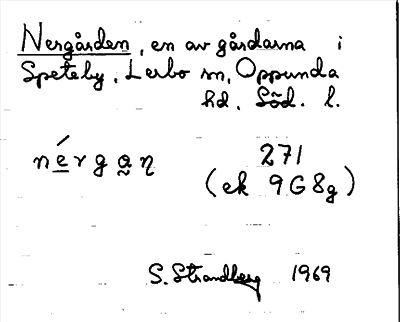 Nergården, en av gårdarna i
Speteby, Lerbo sn, Oppunda
hd, Söd. l.
nę́rgạŋ 271
(ek 9G8g)
S. Strandberg 1969